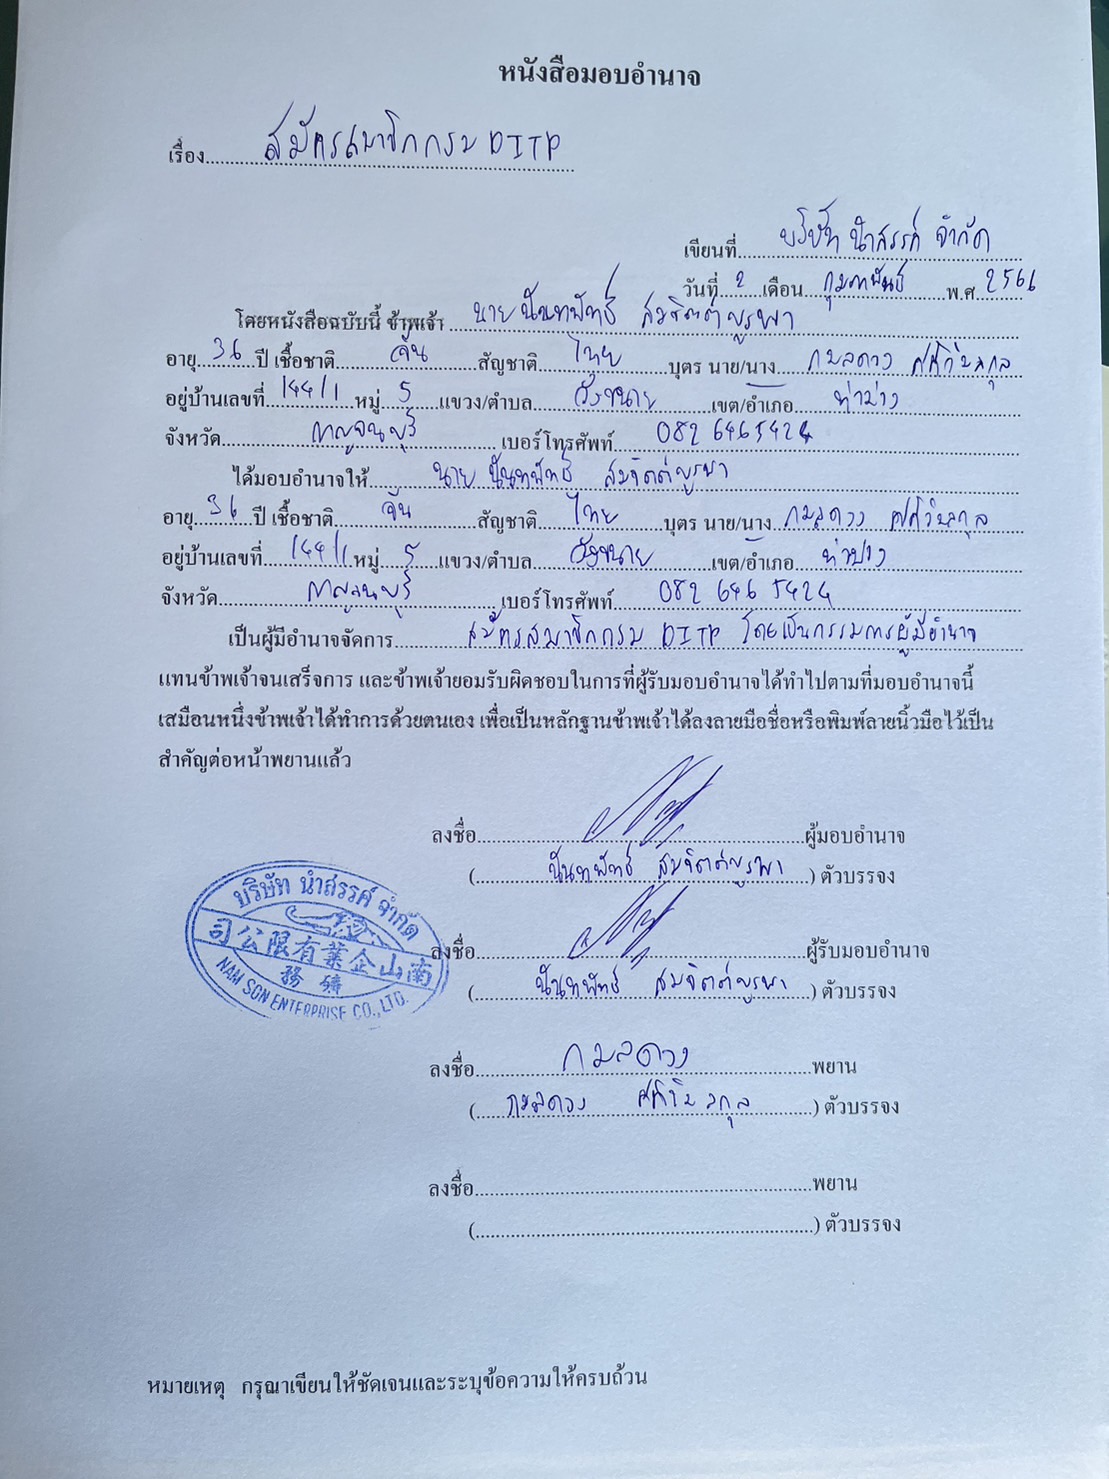 หนังสือมอบอำนาจ
เรื่อง สมัครสมาชิกกรม DITP
เขียนที่ บริษัท นำสรรค์ จำกัด
วันที่ 2 เดือน กุมภาพันธ์ พ.ศ. 2566
โดยหนังสือฉบับนี้ ข้าพเจ้า นาย นันทพัทธ์ สมจิตต์บูรพา
อายุ 36 ปี เชื้อชาติ จีน สัญชาติ ไทย บุตร นาย/นาง กมลดวง
อยู่บ้านเลขที่ 144/1 หมู่ 5 แขวง/ตำบล วังขนาย เขต/อำเภอ ท่าม่วง
จังหวัด กาญจนบุรี เบอร์โทรศัพท์ 082 6465424
ได้มอบอำนาจให้ นาย นันทพัทธ์ สมจิตต์บูรพา
อายุ 36 ปี เชื้อชาติ จีน สัญชาติ ไทย บุตร นาย/นาง กมลดวง
อยู่บ้านเลขที่ 144/1 หมู่ 5 แขวง/ตำบล วังขนาย เขต/อำเภอ ท่าม่วง
จังหวัด กาญจนบุรี เบอร์โทรศัพท์ 082 646 5424
เป็นผู้มีอำนาจจัดการ สมัครสมาชิกกรม DITP โดยเป็นกรรมการผู้มีอำนาจ
แทนข้าพเจ้าจนเสร็จการ และข้าพเจ้ายอมรับผิดชอบในการที่ผู้รับมอบอำนาจได้ทำไปตามที่มอบอำนาจนี้
เสมือนหนึ่งข้าพเจ้าได้ทำการด้วยตนเอง เพื่อเป็นหลักฐานข้าพเจ้าได้ลงลายมือชื่อหรือพิมพ์ลายนิ้วมือไว้เป็น
สำคัญต่อหน้าพยานแล้ว
ลงชื่อ ผู้มอบอำนาจ
( นันทพัทธ์ สมจิตต์บูรพา ) ตัวบรรจง
บริษัท นำสรรค์ จำกัด
司公限有業企山南
務礦
NAM SON ENTERPRISE CO., LTD.
ลงชื่อ ผู้รับมอบอำนาจ
( นันทพัทธ์ สมจิตต์บูรพา ) ตัวบรรจง
ลงชื่อ กมลดวง พยาน
( กมลดวง ) ตัวบรรจง
ลงชื่อ พยาน
( ) ตัวบรรจง
หมายเหตุ กรุณาเขียนให้ชัดเจนและระบุข้อความให้ครบถ้วน